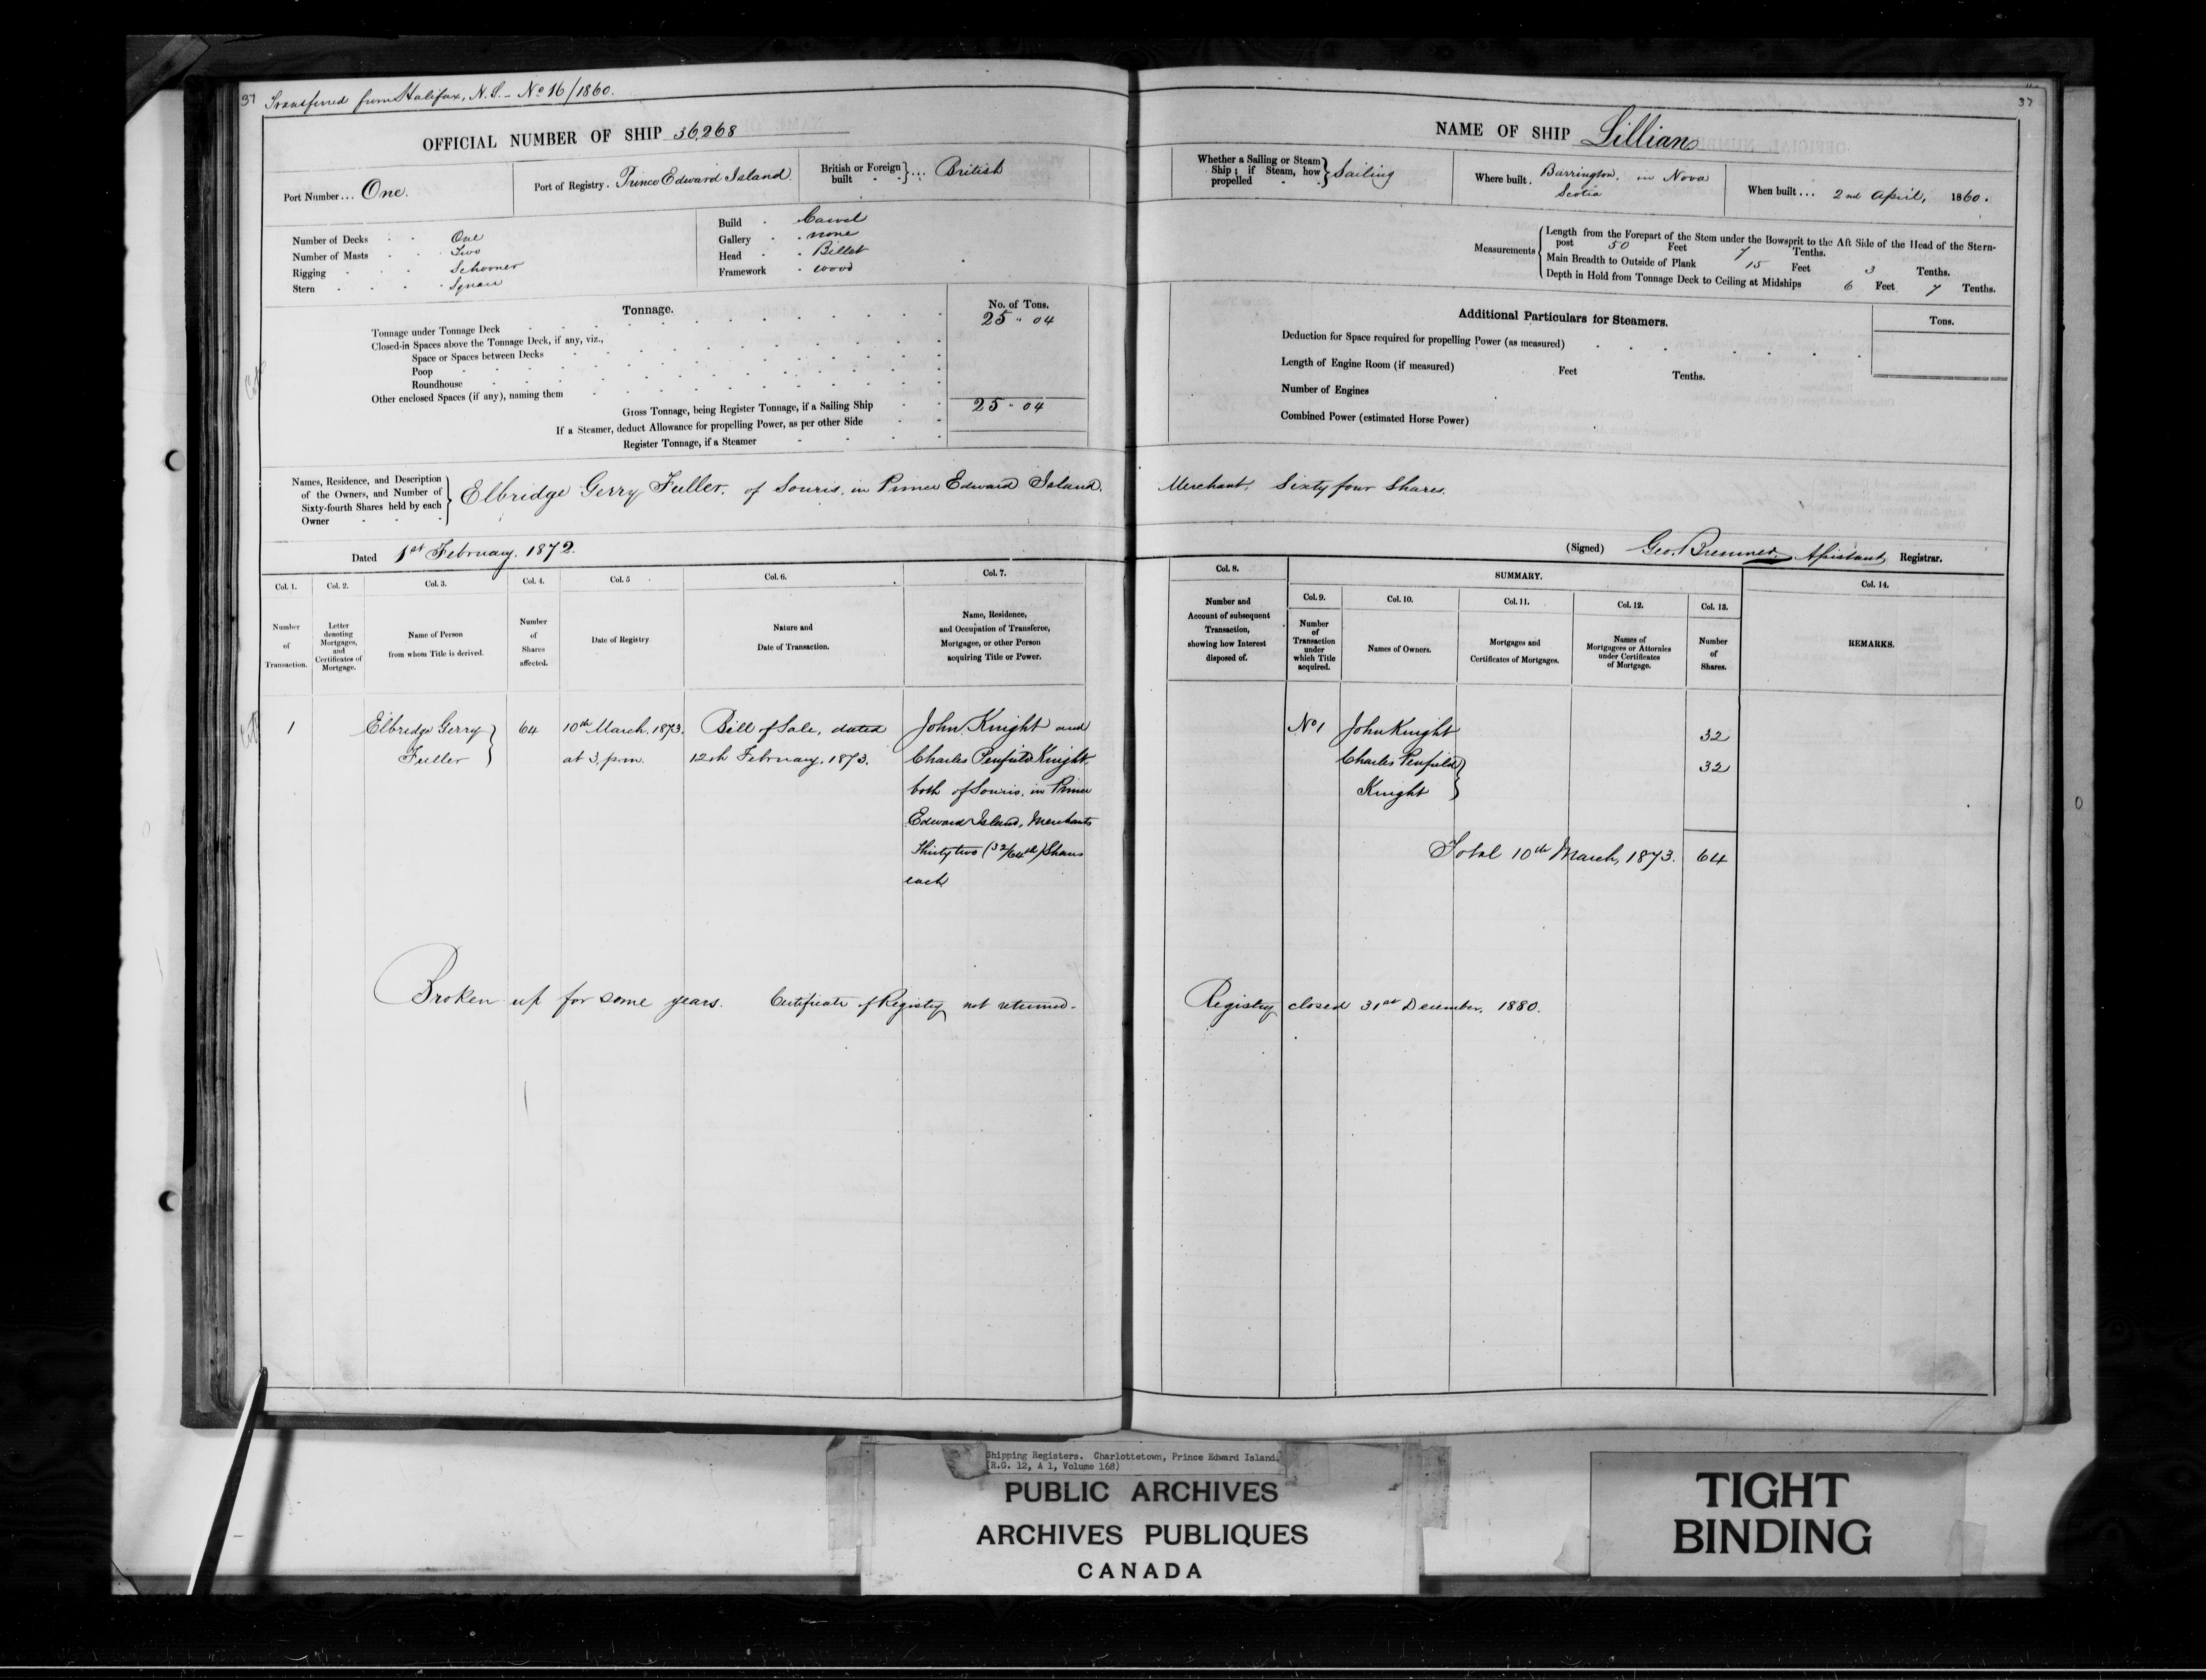 37 Transferred from Halifax, N.S. - No 16/1860.
OFFICIAL NUMBER OF SHIP 36,268
Port Number ... One.
Port of Registry. Prince Edward Island.
British or Foreign built } ... British
Number of Decks One
Number of Masts Two
Rigging Schooner
Stern Square
Build Carvel
Gallery none
Head Billet
Framework wood
Tonnage.
No. of Tons.
Tonnage under Tonnage Deck 25 " 04
Closed-in Spaces above the Tonnage Deck, if any, viz.,
Space or Spaces between Decks
Poop
Roundhouse
Other enclosed Spaces (if any), naming them
Gross Tonnage, being Register Tonnage, if a Sailing Ship 25 " 04
If a Steamer, deduct Allowance for propelling Power, as per other Side
Register Tonnage, if a Steamer
37
NAME OF SHIP Lillian
Whether a Sailing or Steam Ship; if Steam, how propelled } Sailing
Where built. Barrington, in Nova Scotia
When built ... 2nd April, 1860.
Measurements { Length from the Forepart of the Stem under the Bowsprit to the Aft Side of the Head of the Stern-
post 50 Feet 7 Tenths.
Main Breadth to Outside of Plank 15 Feet 3 Tenths.
Depth in Hold from Tonnage Deck to Ceiling at Midships 6 Feet 7 Tenths.
Additional Particulars for Steamers.
Tons.
Deduction for Space required for propelling Power (as measured)
Length of Engine Room (if measured) Feet Tenths.
Number of Engines
Combined Power (estimated Horse Power)
Names, Residence, and Description
of the Owners, and Number of
Sixty-fourth Shares held by each
Owner
Elbridge Gerry Fuller, of Souris, in Prince Edward Island, Merchant, Sixty four Shares.
Dated 1st February, 1872.
(Signed) Geo. Bremner, Assistant Registrar.
Col. 1. Number of Transaction.
Col. 2. Letter denoting Mortgages, and Certificates of Mortgage.
Col. 3. Name of Person from whom Title is derived.
Col. 4. Number of Shares affected.
Col. 5 Date of Registry
Col. 6. Nature and Date of Transaction.
Col. 7. Name, Residence, and Occupation of Transferee, Mortgagee, or other Person acquiring Title or Power.
Col. 8. Number and Account of subsequent Transaction, showing how Interest disposed of.
SUMMARY.
Col. 9. Number of Transaction under which Title acquired.
Col. 10. Names of Owners.
Col. 11. Mortgages and Certificates of Mortgages.
Col. 12. Names of Mortgagees or Attornies under Certificates of Mortgage.
Col. 13. Number of Shares.
Col. 14. REMARKS.
1 Elbridge Gerry 64 10th March, 1873. Bill of Sale, dated John Knight and
Fuller } at 3 p.m. 12th February, 1873. Charles Penfield Knight
both of Souris, in Prince
Edward Island, Merchants
Thirty two (32/64th) Shares
each
No 1 John Knight 32
Charles Penfield 32
Knight
Total 10th March, 1873. 64
Broken up for some years. Certificate of Registry not returned. Registry closed 31st December, 1880.
Shipping Registers. Charlottetown, Prince Edward Island.
(R.G. 12, A 1, Volume 168)
PUBLIC ARCHIVES
ARCHIVES PUBLIQUES
CANADA
TIGHT
BINDING